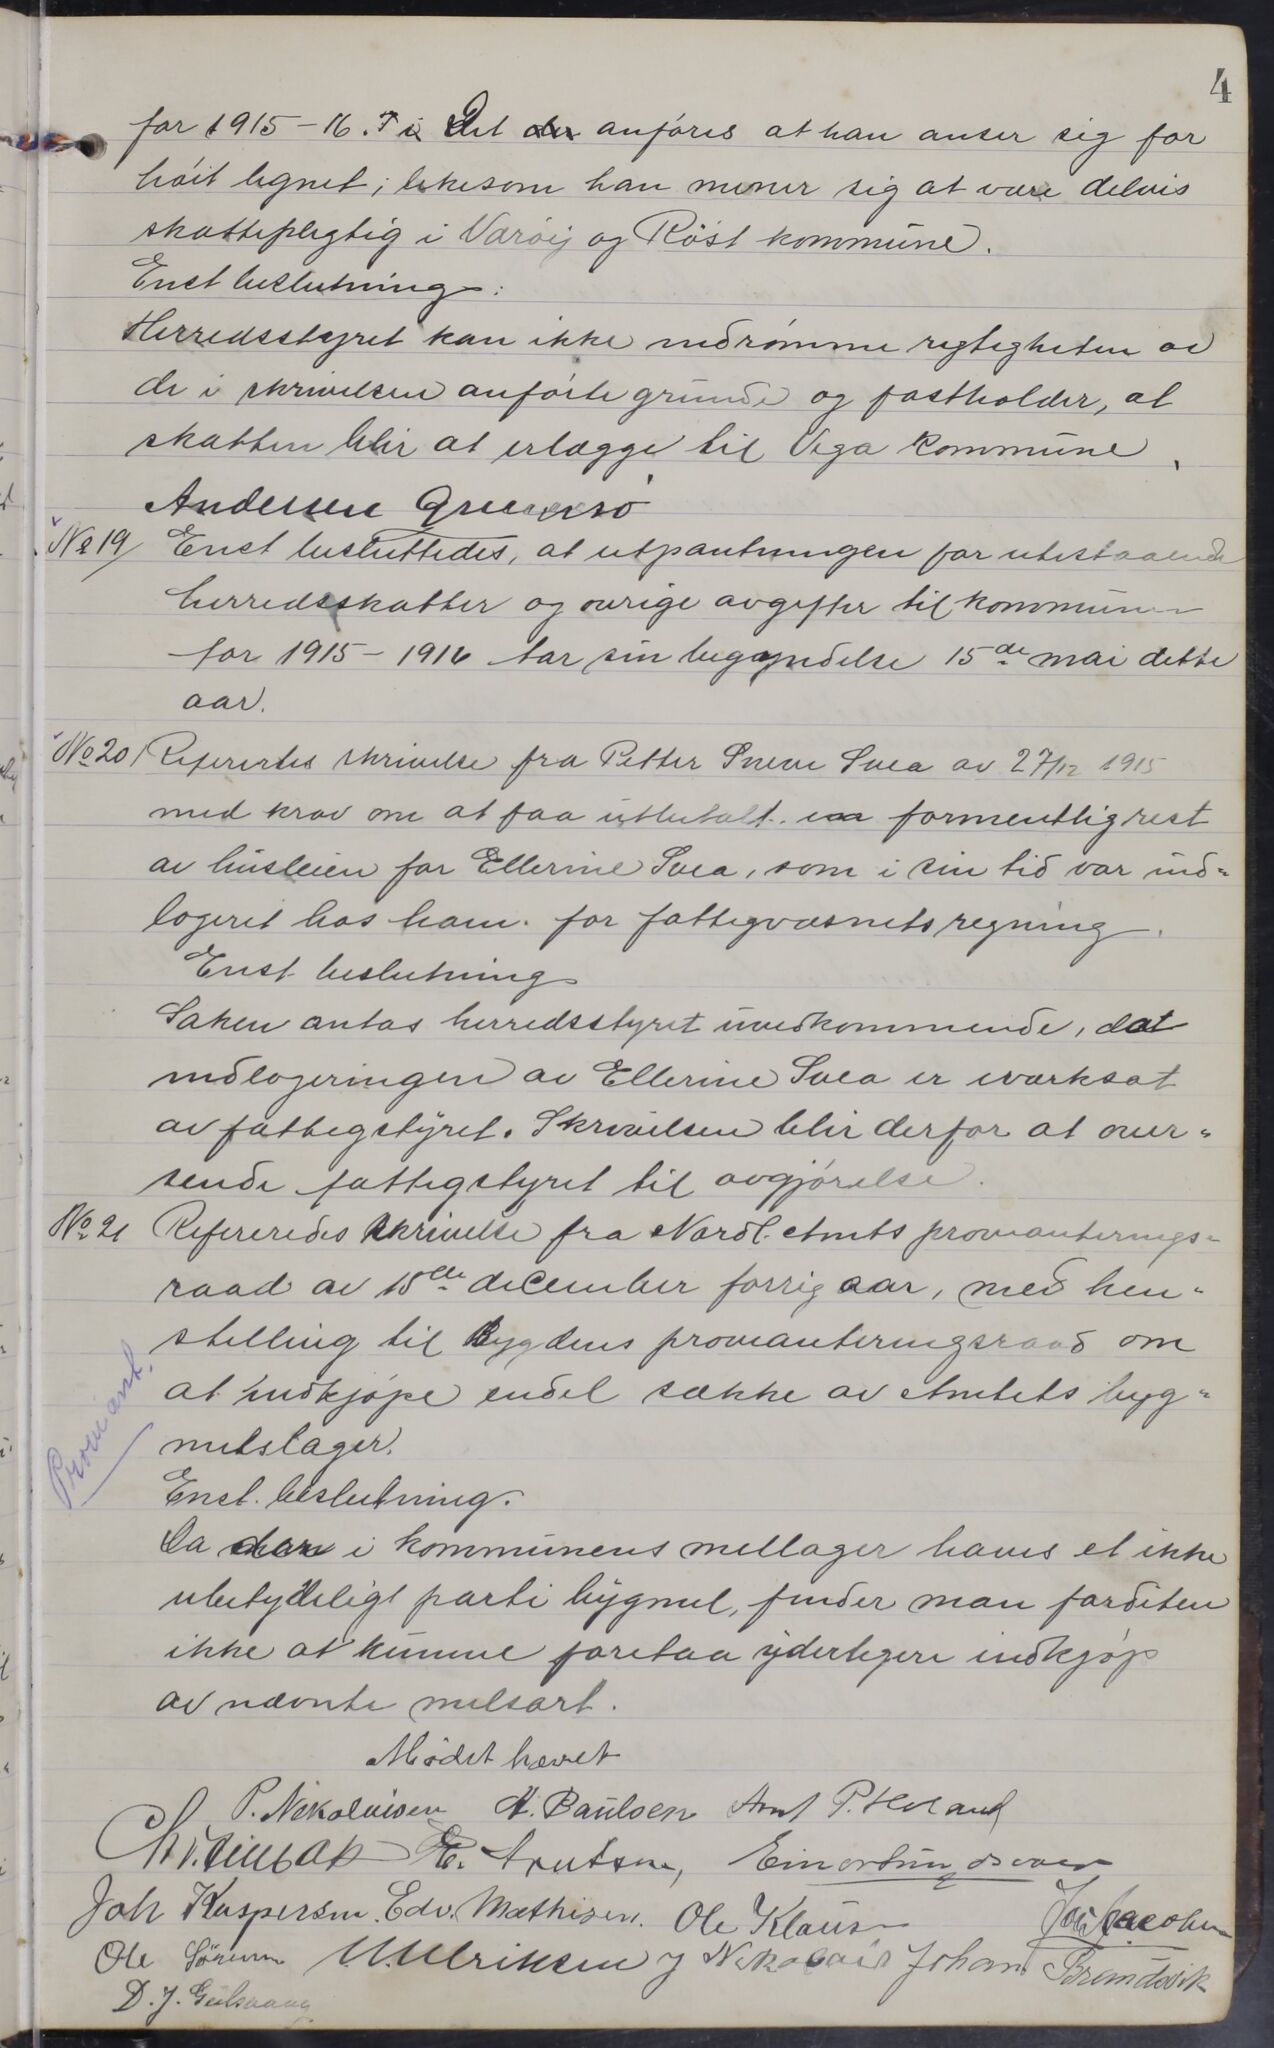 4
for 1915-16. Det anføres at han anser sig for
høit lignet; likesom han mener sig at være delvis
skattepligtig i Værøy og Røst kommune.
Enst beslutning:
Herredsstyret kan ikke indrømme rigtigheten av
de i skrivelsen anførte grunde og fastholder, at
skatten blir at erlægge til Vega kommune.
Andersen
No 19/ Enst besluttedes, at utpantningen for utestaaende
herredsskatter og øvrige avgifter til kommunen
for 1915-1916 tar sin begyndelse 15de mai dette
aar.
No 20/ Referertes skrivelse fra Petter Svea av 27/12 1915
med krav om at faa utbetalt formentlig rest
av husleien for Ellerine Svea, som i sin tid var ind-
logeret hos ham for fattigvæsnets regning.
Enst beslutning
Saken antas herredsstyret uvedkommende, da
indlogeringen av Ellerine Svea er iverksat
av fattigstyret. Skrivelsen blir derfor at over-
sende fattigstyret til avgjørelse.
No 21 Refereredes skrivelse fra Nordl. Amts provianterings-
raad av 15de december forrig aar, med hen-
stilling til Bygdens provianteringsraad om
at indkjøpe endel sække av Amtets byg-
melslager.
Proviant.
Enst. beslutning.
Da der i kommunens mellager haves et ikke
ubetydeligt parti bygmel, finder man fortiden
ikke at kunne foretaa yderligere indkjøp
av nævnte melsort.
Mødet hævet
P. Nikolaisen A. Paulsen P. Holand
E. Knutsen,
Joh Kaspersen. Edv. Mathisen. Ole Klausen Joh Jacobsen
Ole Sörensen U. Ulriksen J Nikolais Johan Brandsvik
D. J.